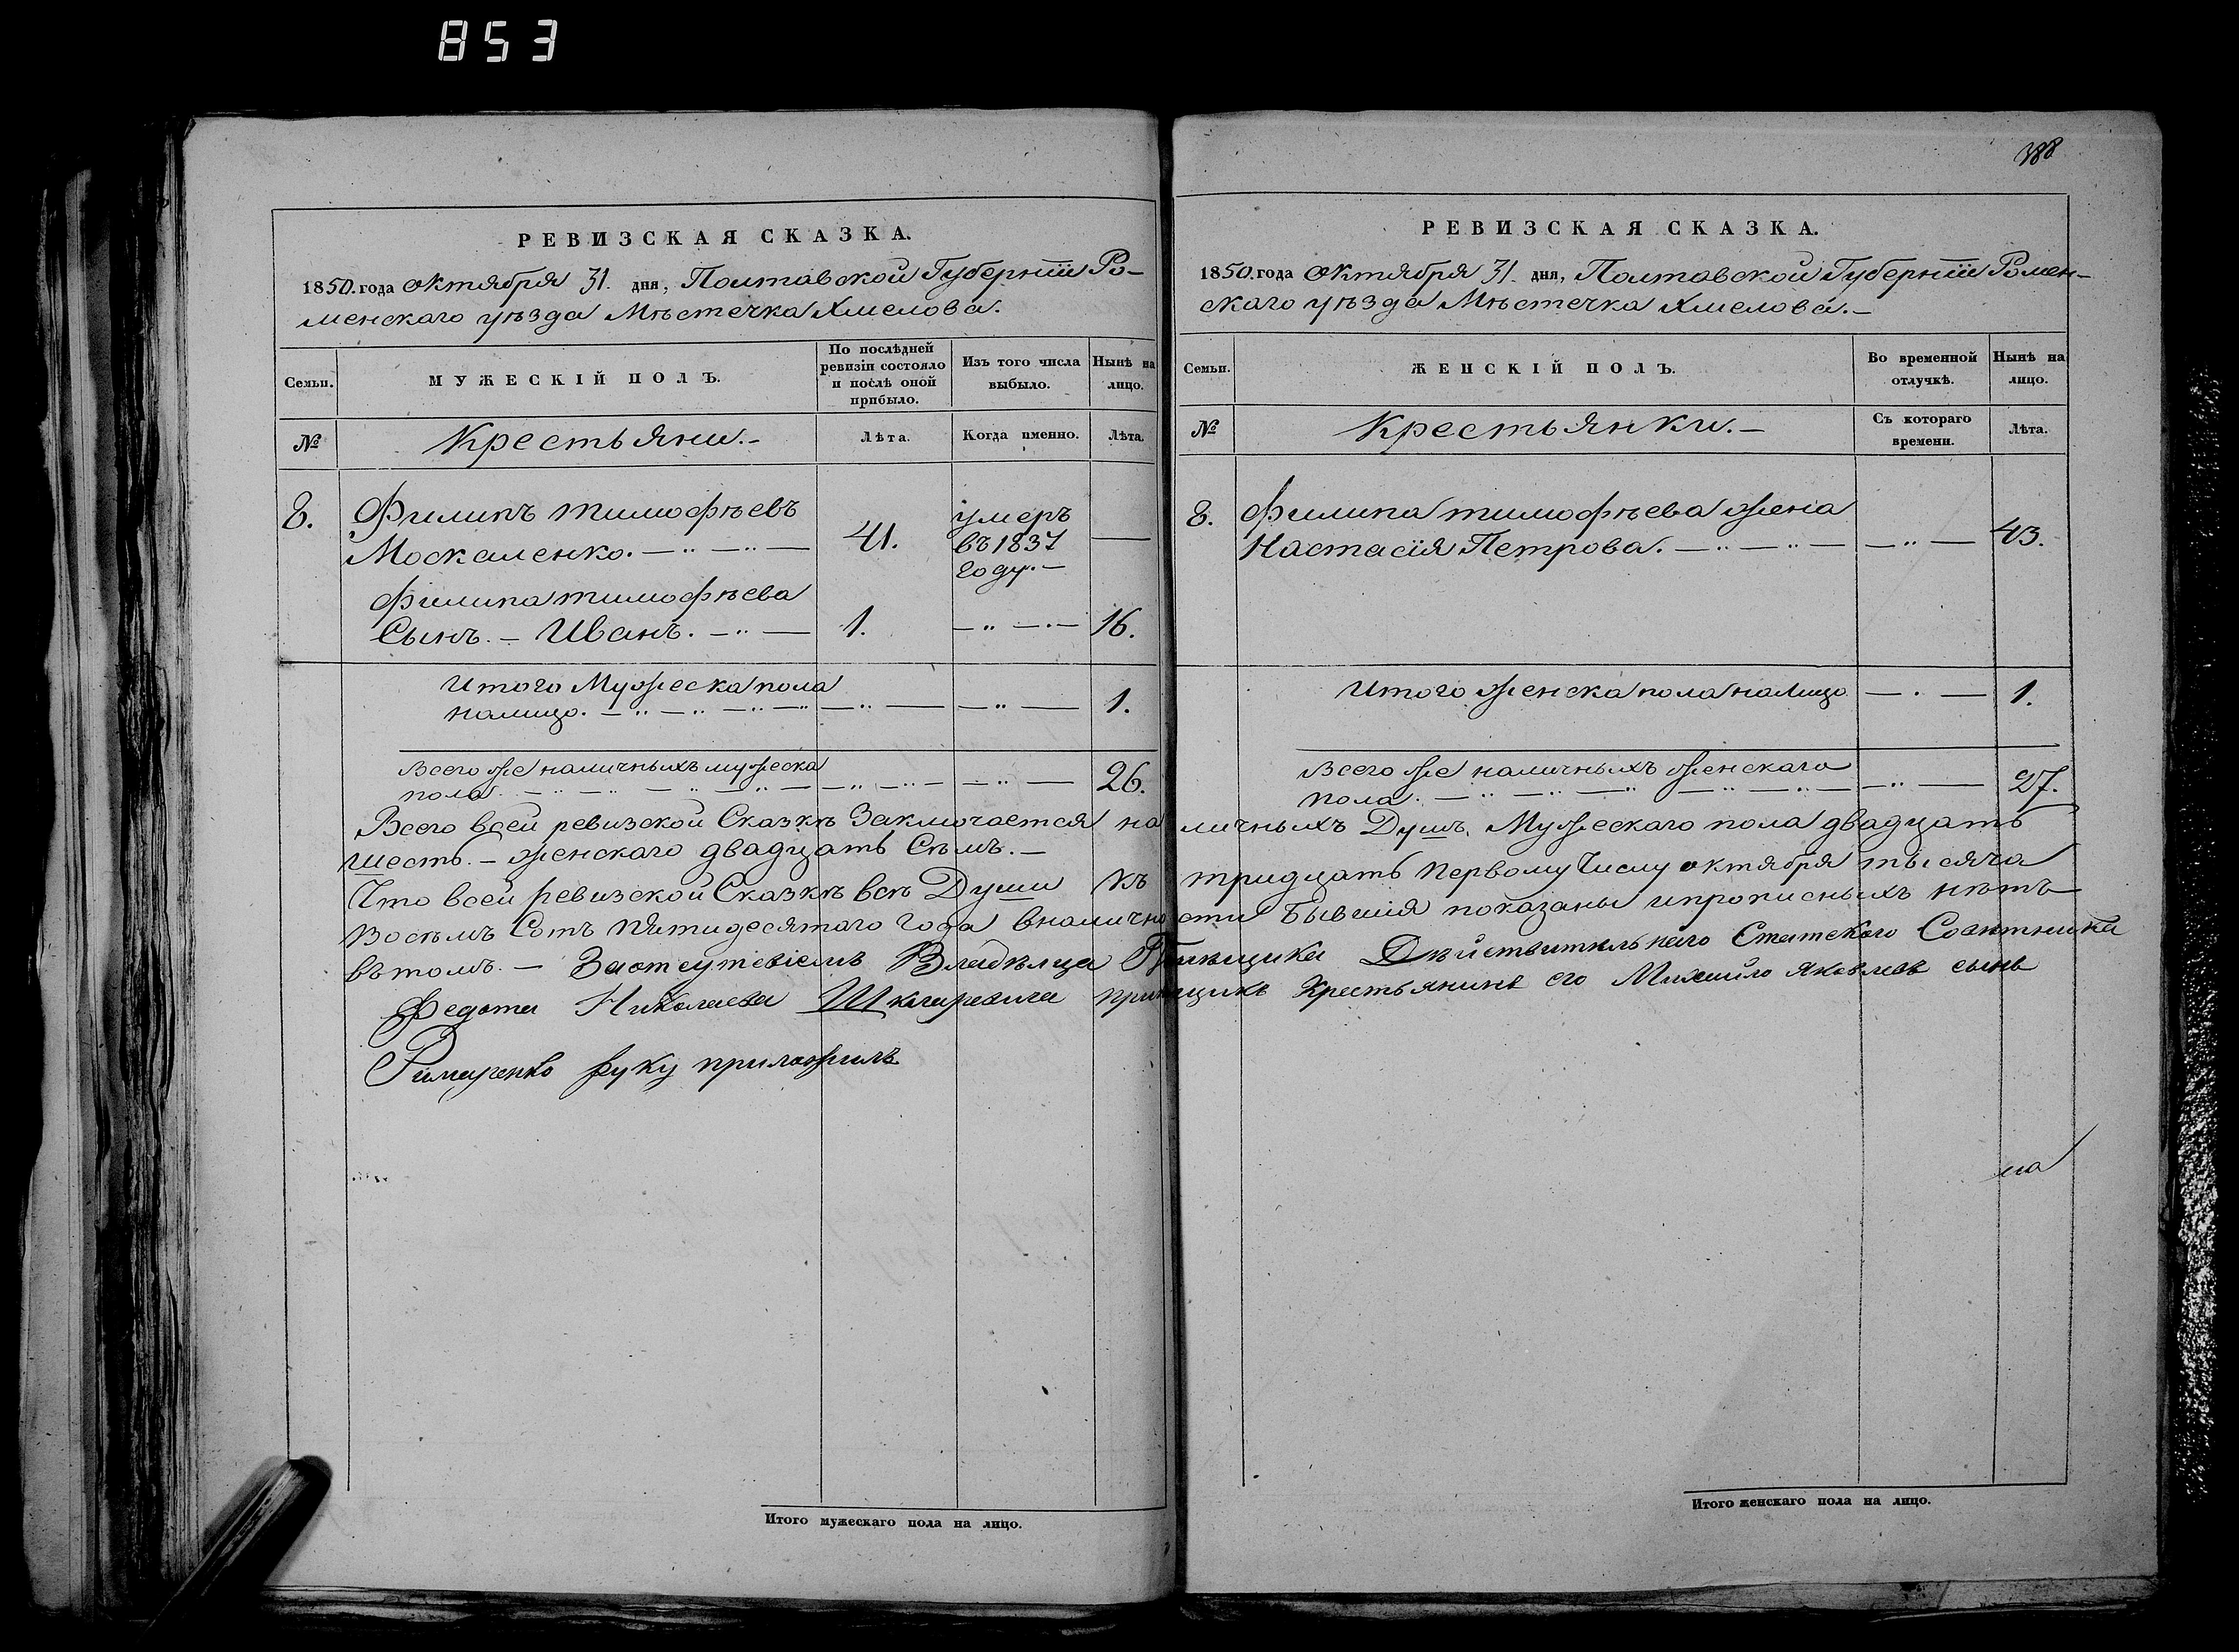 853
388
РЕВИЗСКАЯ СКАЗКА.
1850. года октября 31. дня, Полтавской Губернiи Ро-
менскаго уѣзда Мѣстечка Хмелова.
Семьи.
МУЖЕСКІЙ ПОЛЪ.
По послѣдней
ревизіи состояло
и послѣ оной
прибыло.
Изъ того числа
выбыло.
Нынѣ на
лицо.
№
Крестьяни.-
Лѣта.
Когда именно.
Лѣта.
8.
Филипъ тимофѣевъ
Москаленко.
41.
умеръ
въ 1837
году.-
Филипа тимофѣева
Сынъ. - Иванъ.
1.
16.
Итого Мужеска пола
налицо.
1.
Всего же наличныхъ мужеска
пола.
26.
РЕВИЗСКАЯ СКАЗКА.
1850. года октября 31. дня, Полтавской Губернiи Ромен-
скаго уѣзда Мѣстечка Хмелова.-
Семьи.
ЖЕНСКІЙ ПОЛЪ.
Во временной
отлучкѣ.
Нынѣ на
лицо.
№
Крестьянки.-
Съ котораго
времени.
Лѣта.
8.
Филипа тимофѣева жена
Настасія Петрова.
43.
Итого женска пола налицо
1.
Всего же наличныхъ женскаго
пола.
27.
Всего всей ревизской Сказкѣ Заключается наличныхъ Душъ, Мужескаго пола двадцать
шесть. - женскаго двадцать Сѣмъ.-
Что всей ревизской Сказкѣ всѣ Души къ тридцать Первому Числу октября тысяча
Восѣмъ Сотъ пятидесятаго года вналичности Бывшія показаны ипрописныхъ нѣтъ
вътомъ. - Заотсутсвіемъ Владѣлца Дѣйствительнаго Статского Советника
Федота Николаева Шкларевича прикащикъ Крестьянинъ его Михайло Яковлевъ сынъ
Римаренко руку приложилъ
на
Итого мужескаго пола на лицо.
Итого женскаго пола на лицо.